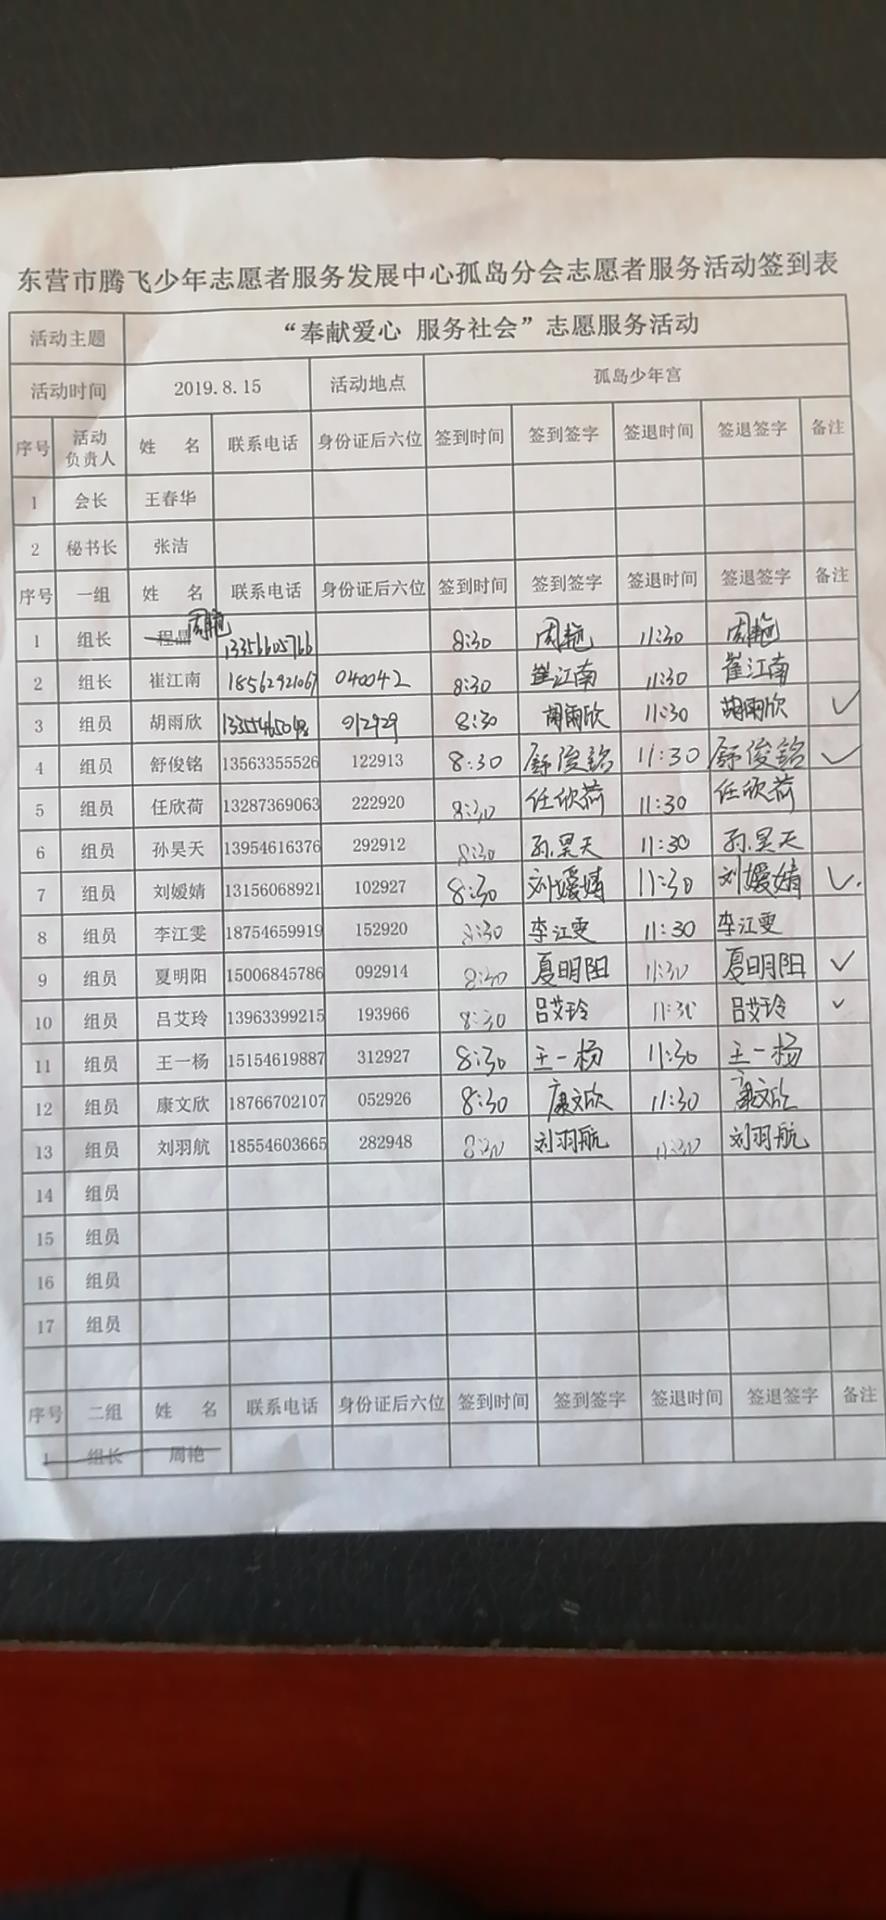 东营市腾飞少年志愿者服务发展中心孤岛分会志愿者服务活动签到表
活动主题 “奉献爱心 服务社会”志愿服务活动
活动时间 2019.8.15 活动地点 孤岛少年宫
序号 活动负责人 姓 名 联系电话 身份证后六位 签到时间 签到签字 签退时间 签退签字 备注
1 会长 王春华
2 秘书长 张洁
序号 一组 姓 名 联系电话 身份证后六位 签到时间 签到签字 签退时间 签退签字 备注
1 组长 程晶 周艳 13356605766 8:30 周艳 11:30 周艳
2 组长 崔江南 18562921067 040042 8:30 崔江南 11:30 崔江南
3 组员 胡雨欣 13355465098 012929 8:30 胡雨欣 11:30 胡雨欣 ✓
4 组员 舒俊铭 13563355526 122913 8:30 舒俊铭 11:30 舒俊铭 ✓
5 组员 任欣荷 13287369063 222920 8:30 任欣荷 11:30 任欣荷
6 组员 孙昊天 13954616376 292912 8:30 孙昊天 11:30 孙昊天
7 组员 刘嫒婧 13156068921 102927 8:30 刘嫒婧 11:30 刘嫒婧 ✓
8 组员 李江雯 18754659919 152920 8:30 李江雯 11:30 李江雯
9 组员 夏明阳 15006845786 092914 8:30 夏明阳 11:30 夏明阳 ✓
10 组员 吕艾玲 13963399215 193966 8:30 吕艾玲 11:30 吕艾玲 ✓
11 组员 王一杨 15154619887 312927 8:30 王一杨 11:30 王一杨
12 组员 康文欣 18766702107 052926 8:30 康文欣 11:30 康文欣
13 组员 刘羽航 18554603665 282948 8:30 刘羽航 11:30 刘羽航
14 组员
15 组员
16 组员
17 组员
序号 二组 姓 名 联系电话 身份证后六位 签到时间 签到签字 签退时间 签退签字 备注
1 组长 周艳